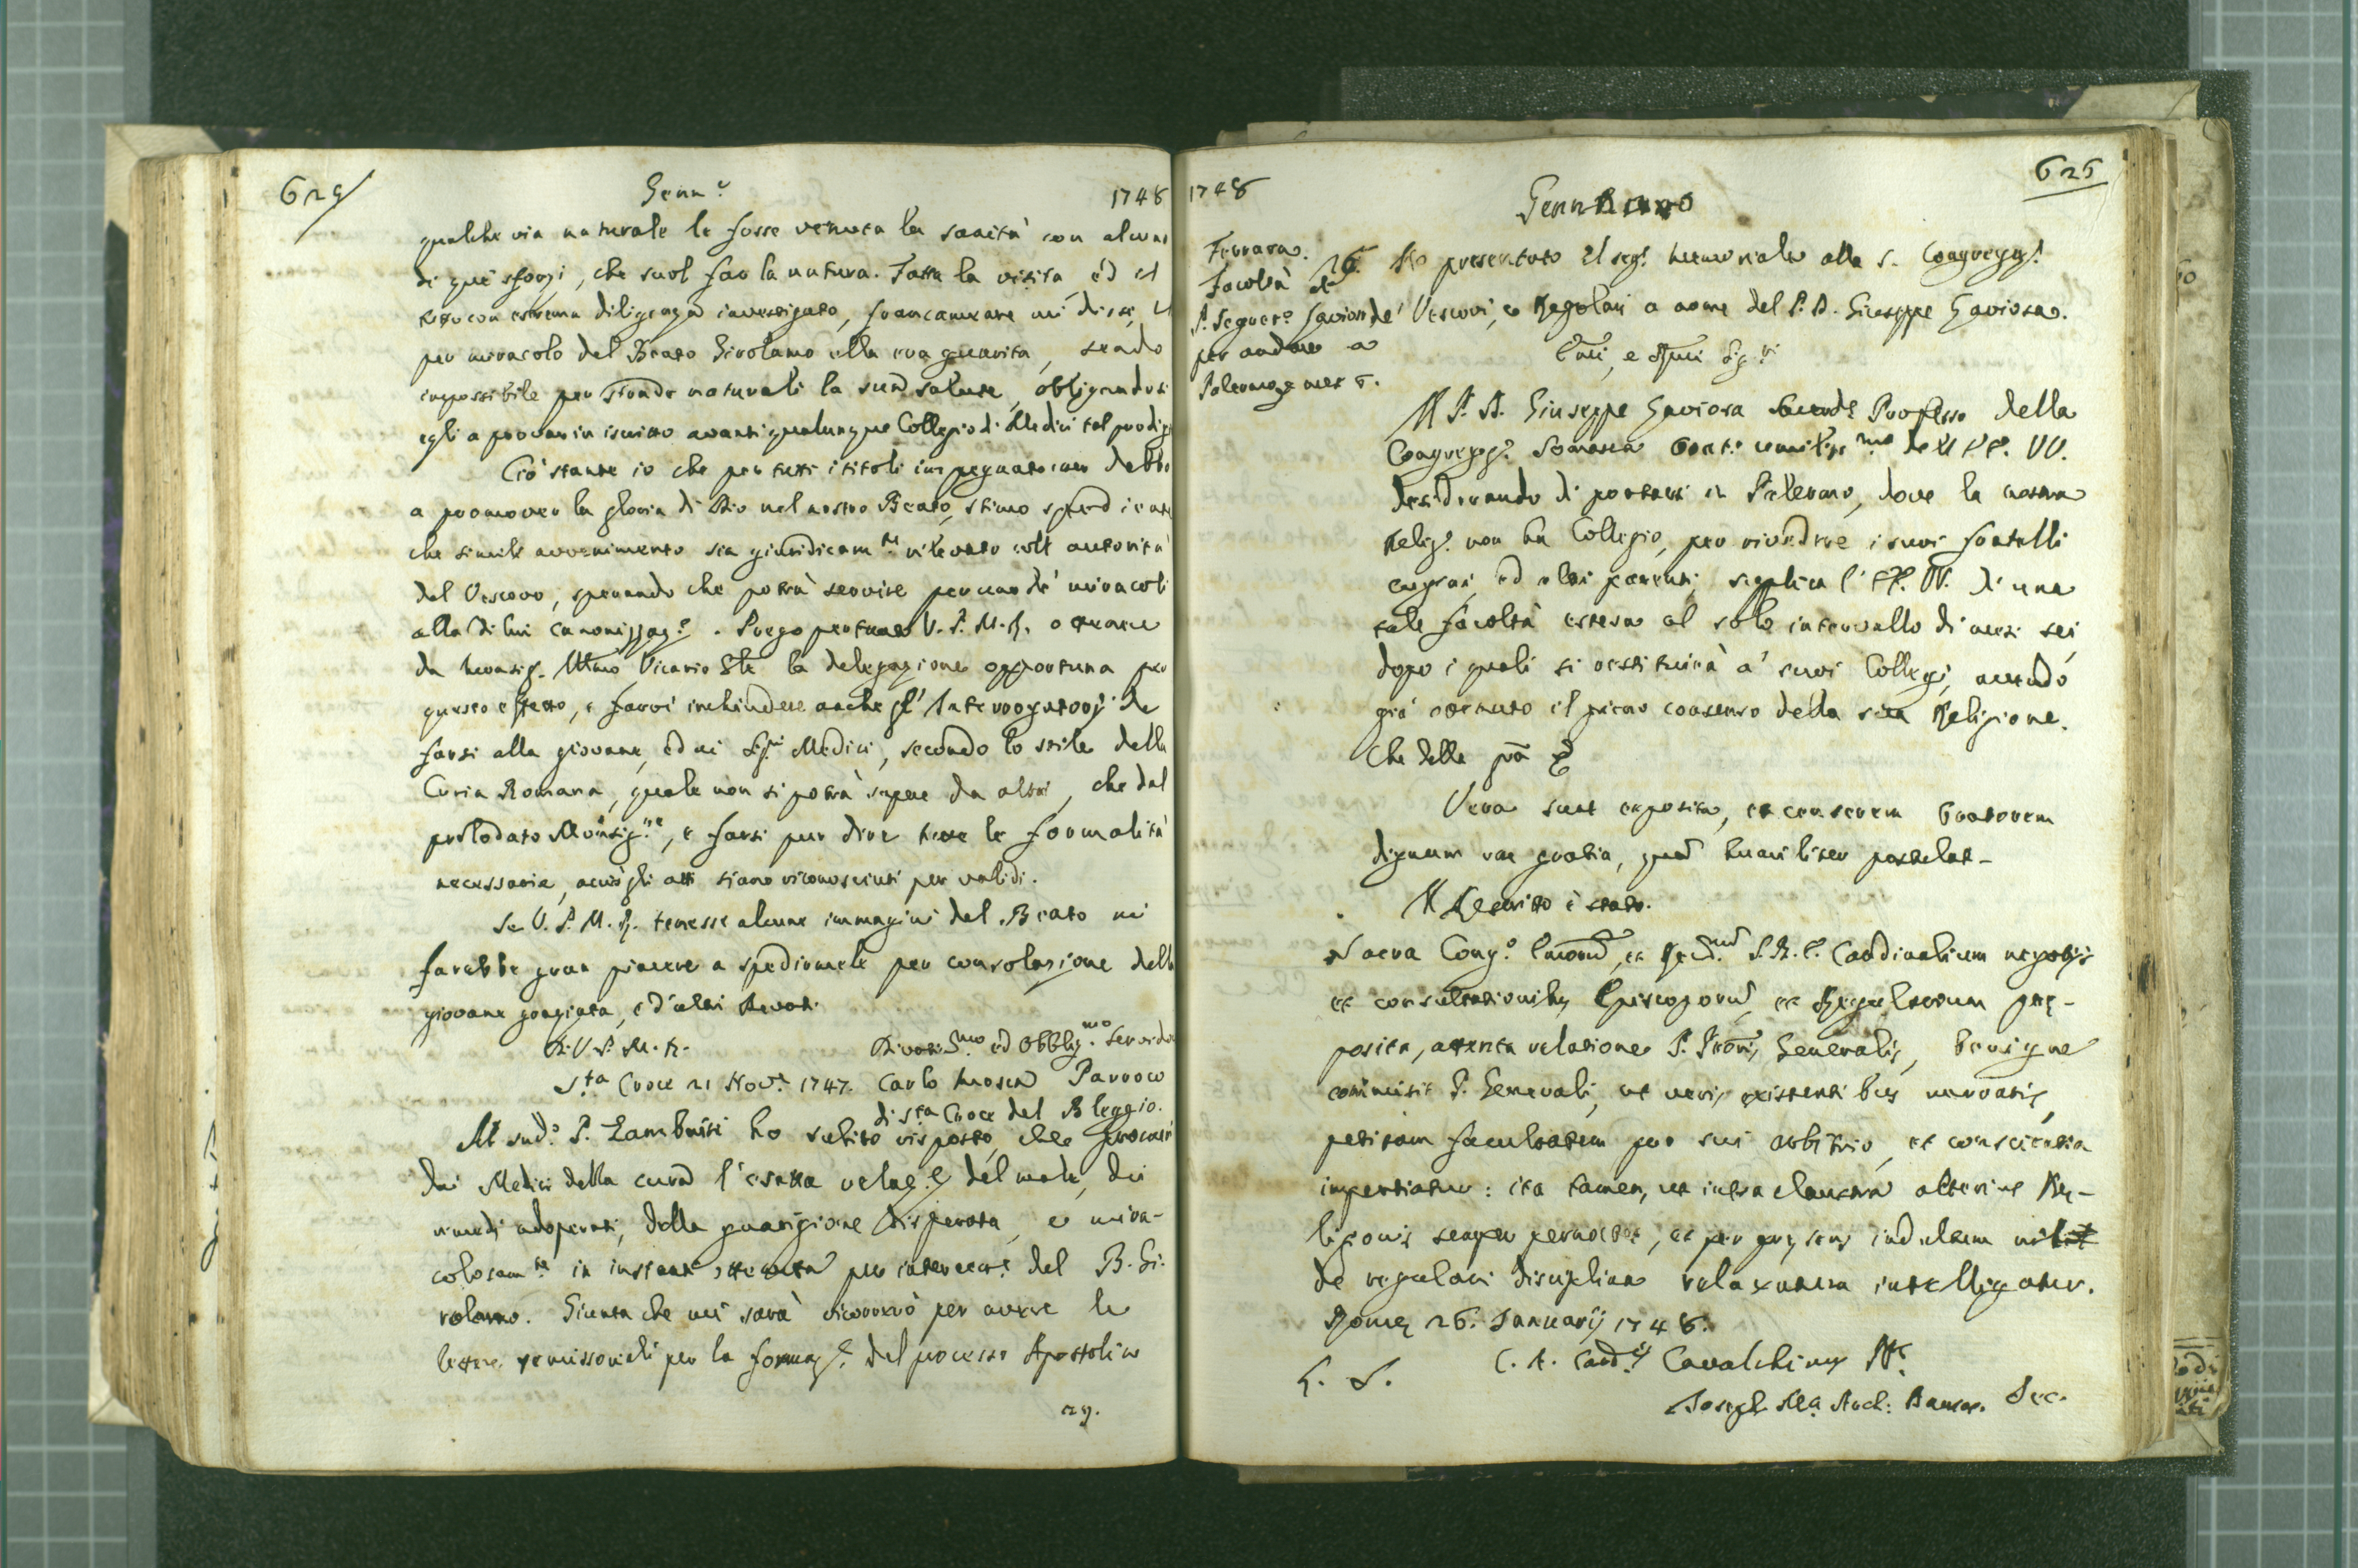 624
Genn.o
1748
qualche via naturale le fosse venuta la sanità con alcuni
di que' sforzi, che suol far la natura. Fatta la visita, ed il
tutto con estrema diligenza investigato, francamente mi disse,
per miracolo del Beato Girolamo ella era guarita, sendo
impossibile per strade naturali la sua salute, obligandosi
egli a provar in iscritto avanti qualunque Collegio di Medici tal prodig
Ciò stante io che per tutti i titoli impegnatomen debbo
a promover la gloria di Dio nel nostro Beato, stimo spediente
che simile avvenimento sia giuridicam.te rilevato coll autorità
del Vescovo, sperando che potrà servire per uno de' miracoli
alla di lui canonizzaz.e. Prego pertanto V. P. M. R. ottenere
da Monsig. Illmo Vicario Gle la delegazione opportuna per
questo effetto, e farvi inchiudere anche gl' Interrogatorj da
farsi alla giovane, ed ai Sig.ri Medici, secondo lo stile della
Curia Romana, quale non si potrà sapere da altri, che dal
prelodato Monsig.re, e farsi pur dire tutte le formalità
necessarie, acciò gli atti siano riconosciuti per validi.
Se V. P. M. R. tenesse alcune immagini del Beato mi
farebbe gran piacere a spedirmele per consolazione della
giovane graziata, e d'altri devoti.
D. V. P. M. R.
Divotis.mo ed Obblig.mo Servidor
S.ta Croce 21 Nov.e 1747. Carlo Mosca Parroco
di S.ta Croce del Bleggio.
Al sud.o P. Zambaiti ho subito risposto, che procuri
dai Medici della cura l'esatta relaz.e del male, dei
rimedj adoperati, della guarigione disperata, e mira-
colosam.te in instanti ottenuta per intercess.e del B. Gi-
rolamo. Giunta che mi sarà ricorrerò per avere le
lettere remissoriali per la formaz.e del processo Apostolico
1748
Gennaro
625
Ferrara.
Facoltà al
P. Giuseppe Gaviora
per andare a
Palermo per mesi 6.
26. Ho presentato il seg.e memoriale alla S. Congregaz.e
de' Vescovi, e Regolari a nome del P. D. Giuseppe Gaviora.
Emi, e Rmi Sig.ri
Il P. D. Giuseppe Gaviora Sacerd.e Professo della
Congregaz.e Somasca Orat.e umiliss.mo dell' EE. VV.
desiderando di portarsi in Palermo, dove la nostra
Relig.e non ha Collegio, per rivedere i suoi fratelli
cugini, ed altri parenti, supplica l' EE. VV. di una
tale facoltà estesa al solo intervallo di mesi sei,
dopo i quali si restituirà a' suoi Collegi, avendo
già ottenuto il pieno consenso della sua Religione.
Che della grã &
Vera sunt exposita, et censerem Oratorem
dignum ea gratia, quam humiliter postulat-
Il Rescritto è stato.
Sacra Cong.o Emorũ, et Rev.morũ S. R. E. Cardinalium negotijs
et consultationibus Episcoporũ, et Regularium prę-
posita, attenta relatione P. Pronis Generalis, benigne
commisit P. Generali, ut veris existentibus narratis,
petitam facultatem pro suo arbitrio, et conscientia
impertiatur: ita tamen, ut intra claustra alterius Re-
ligionis semper pernoctet, et per pręsens indultum nihil
de regulari disciplina relaxatum intelligatur.
Romę 26. Januarij 1748.
C. A. Card.lis Cavalchinus Pf.
L. S.
Joseph M.a Arch: Sec.